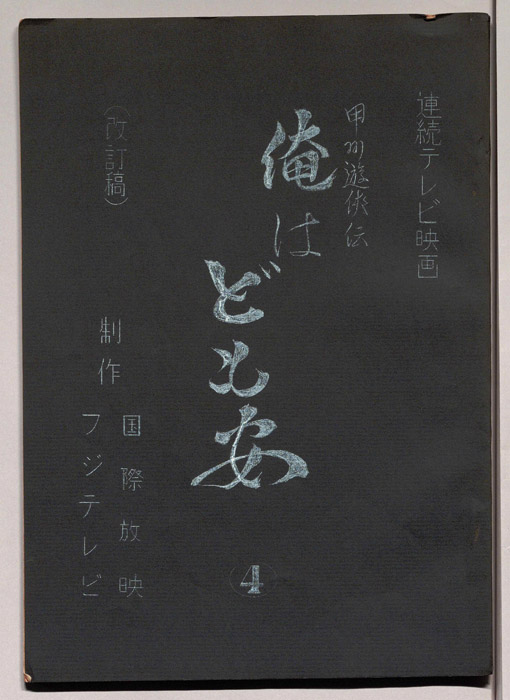 連続テレビ映画
甲州遊侠伝
俺はども安
④
(改訂稿)
制作
国際放映
フジテレビ